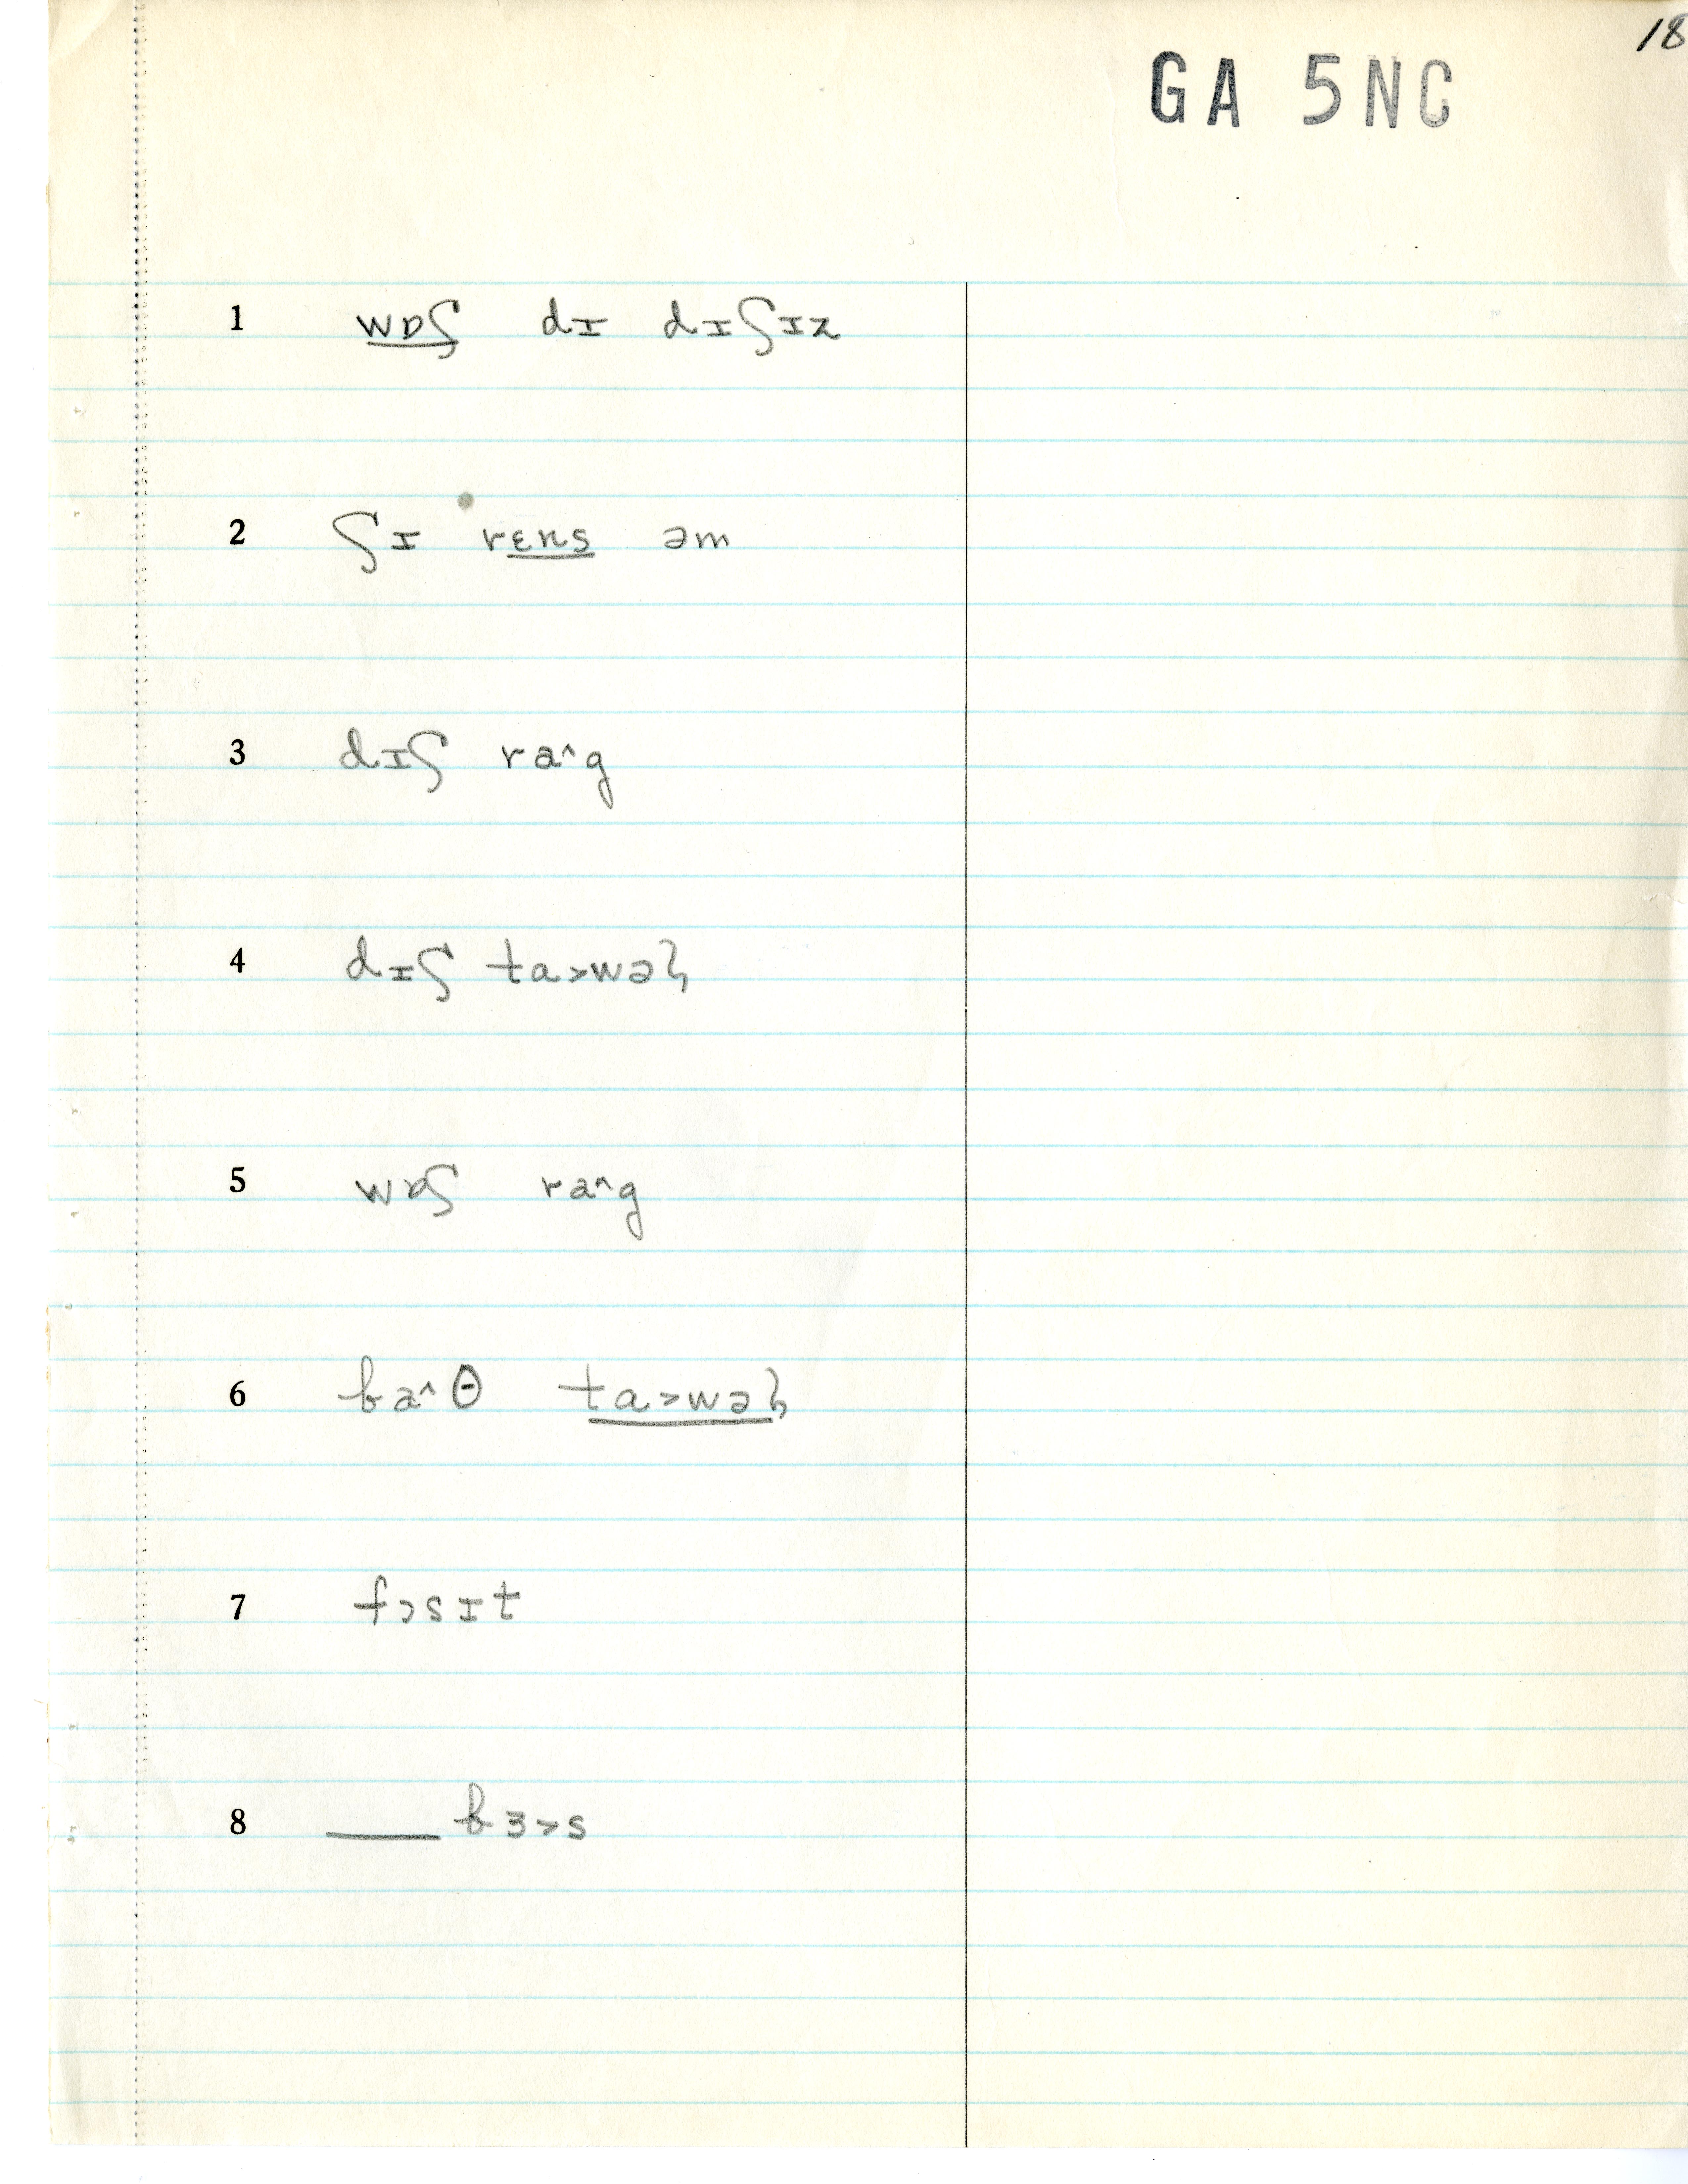 18
GA 5NC
1 wɒʃ dɪ dɪʃɪz
2 ʃɪ rɛns əm
3 dɪʃ ra^g
4 dɪʃ ta>wəɮ
5 wɒʃ ra^g
6 ba^θ ta>wəɮ
7 fɔsɪt
8 ___ bɜ>s